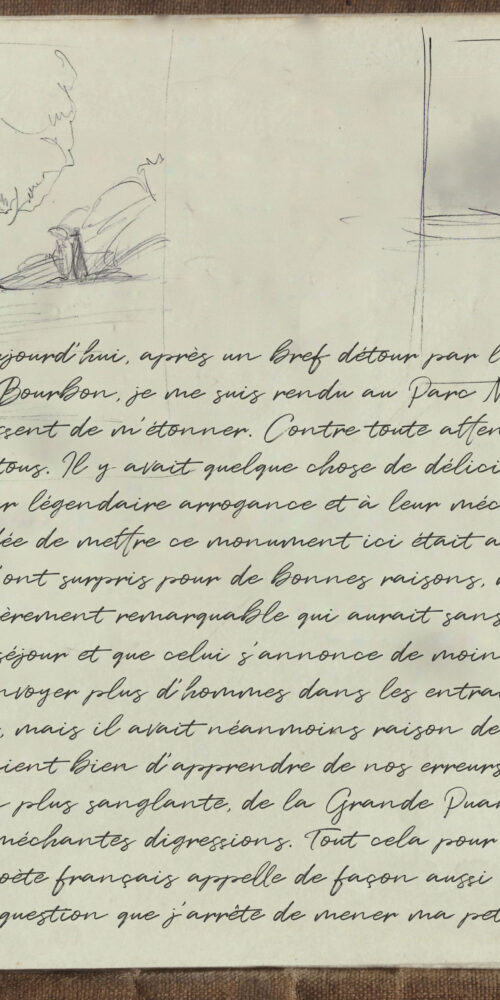 ujourd'hui, après un bref détour par l
Bourbon, je me suis rendu au Parc M
ssent de m'étonner. Contre toute atten
tous. Il y avait quelque chose de délici
ur légendaire arrogance et à leur méc
dée de mettre ce monument ici était a
'ont surpris pour de bonnes raisons,
èrement remarquable qui aurait sans
séjour et que celui s'annonce de moin
nvoyer plus d'hommes dans les entra
, mais il avait néanmoins raison de
ient bien d'apprendre de nos erreurs
plus sanglante, de la Grande Puan
méchantes digressions. Tout cela pour
oète français appelle de façon aussi
question que j'arrête de mener ma pet